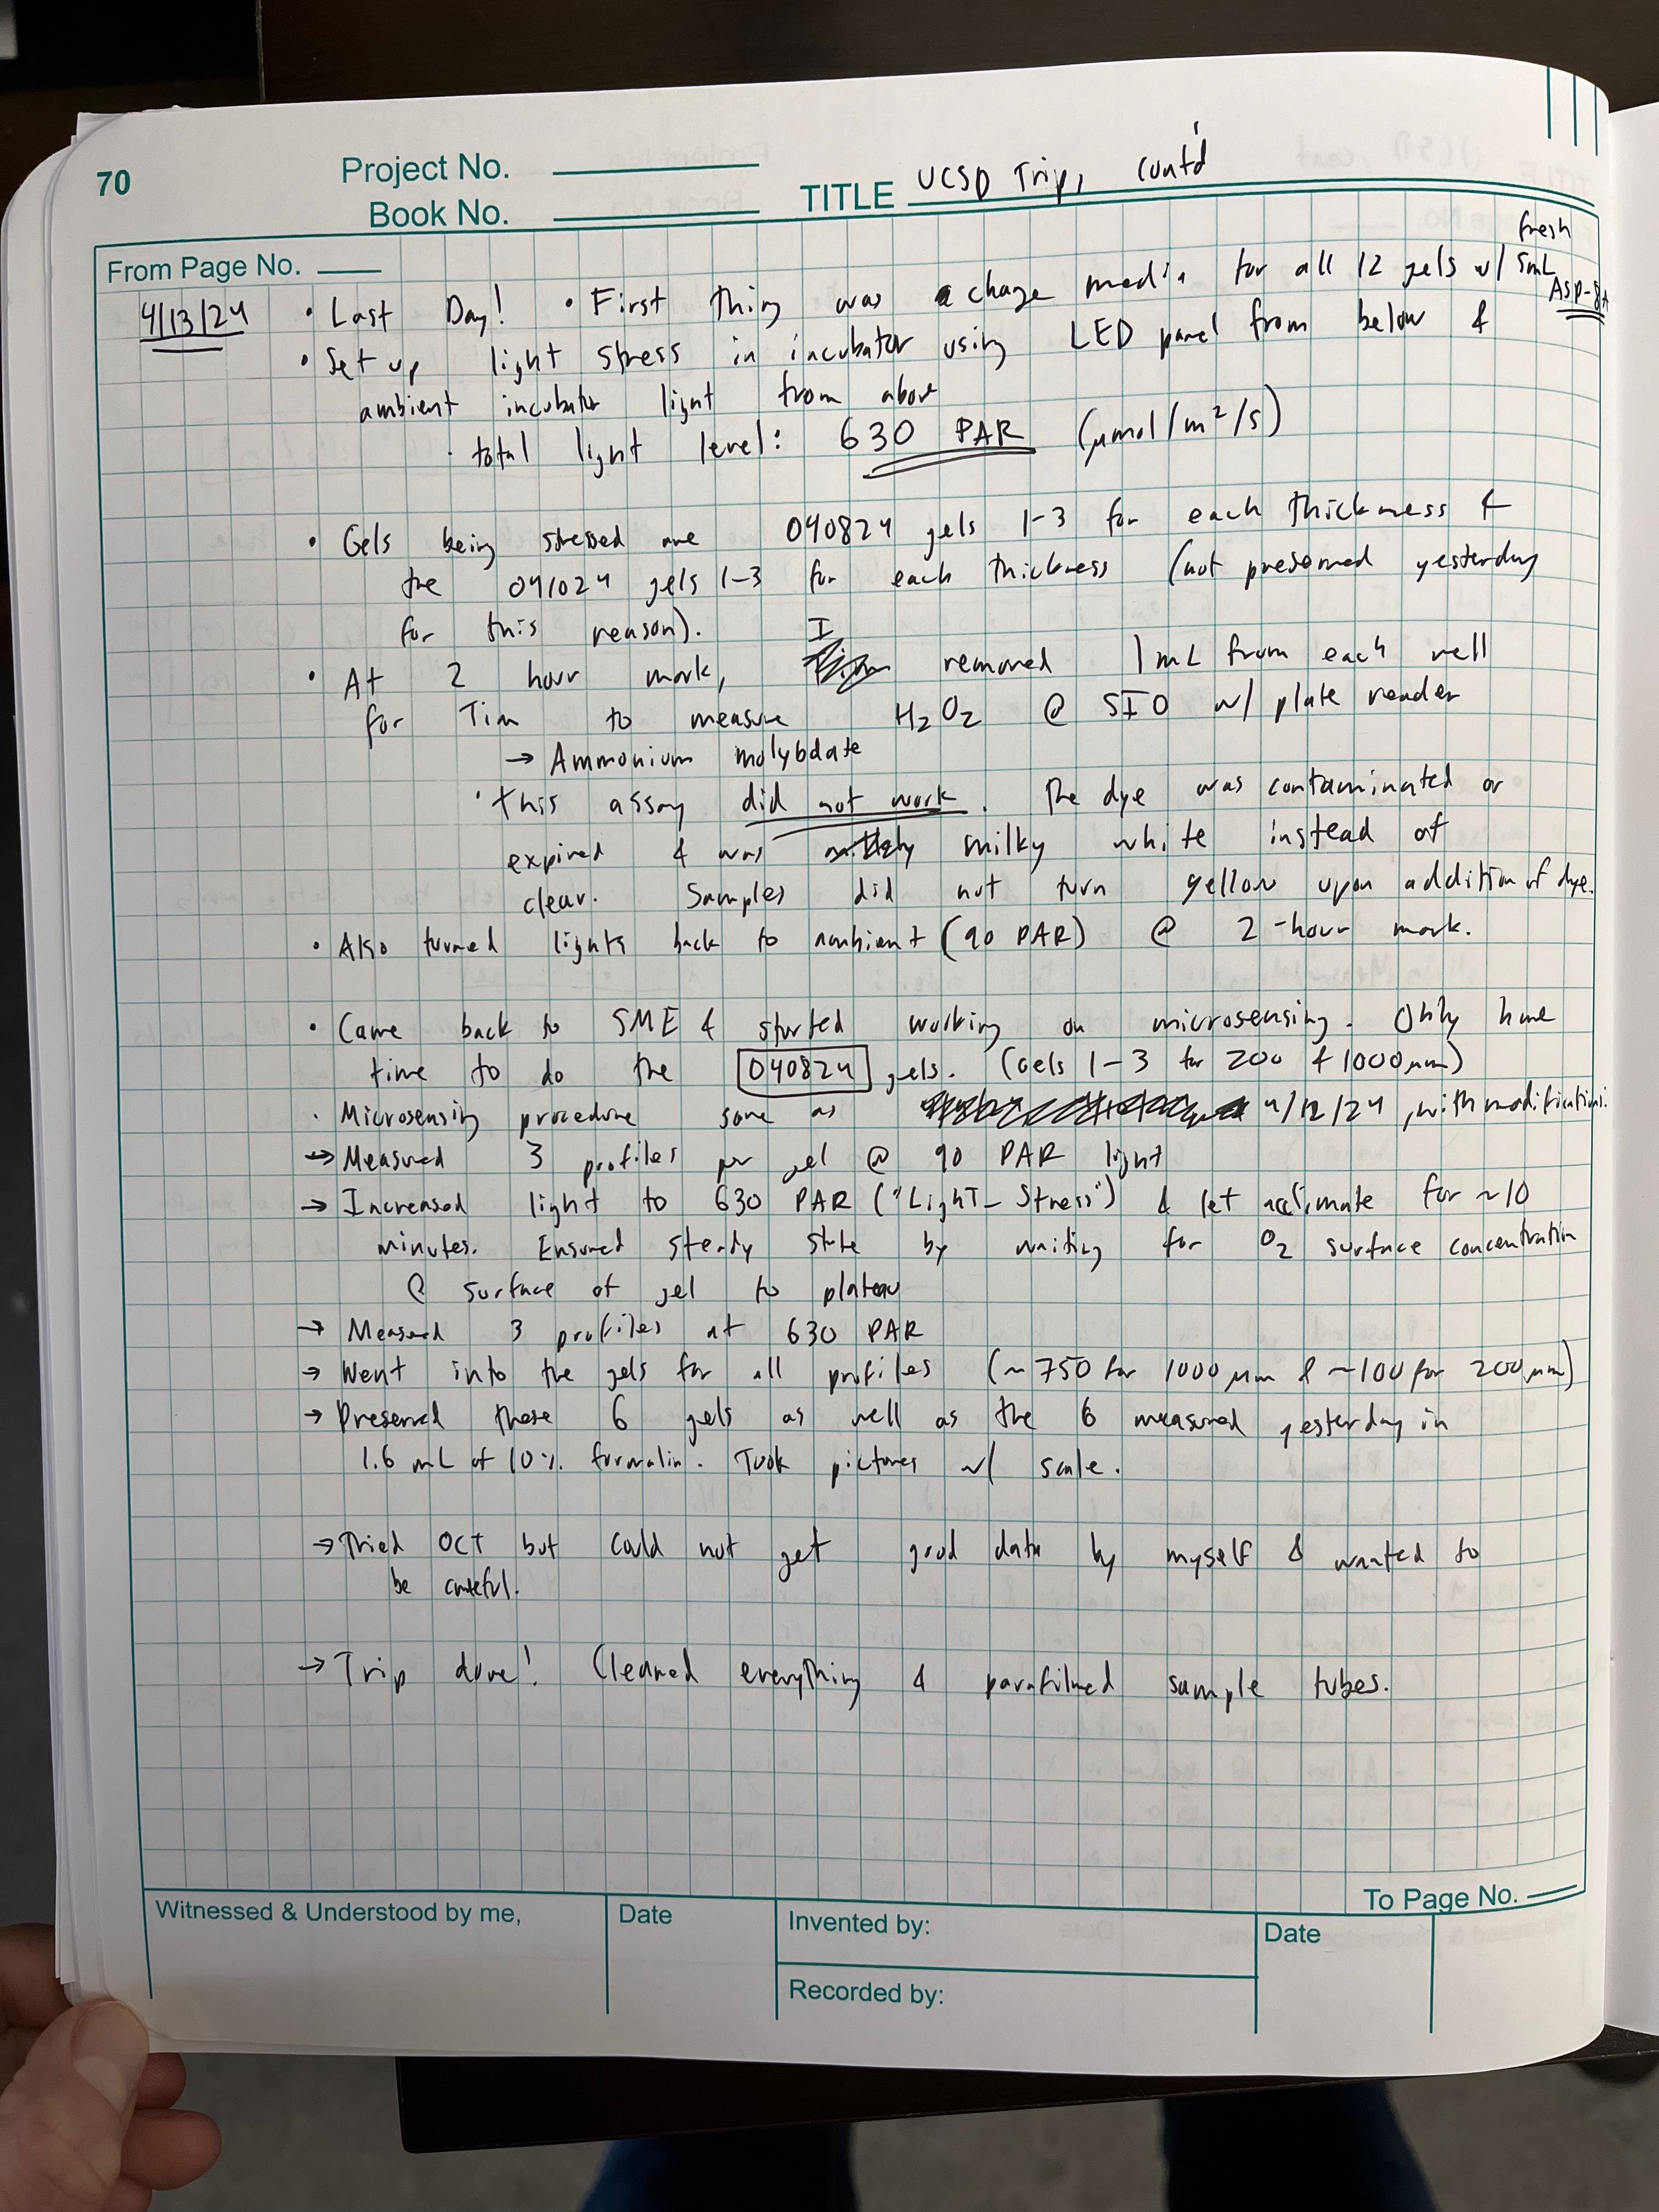 70
Project No.
Book No.
TITLE UCSD Trip, cont'd
From Page No.
fresh
4/13/24 • Last Day! • First thing was change media for all 12 gels w/ 5mL
• Set up light stress in incubator using LED panel from below &
ambient incubator light from above
· total light level: 630 PAR (μmol/m²/s)
• Gels being stressed are 040824 gels 1-3 for each thickness &
the 041024 gels 1-3 for each thickness (not preserved yesterday
for this reason).
• At 2 hour mark, I removed 1mL from each well
for Tim to measure H2O2 @ SIO w/ plate reader
→ Ammonium molybdate
• this assay did not work. The dye was contaminated or
expired & was milky white instead of
clear. Samples did not turn yellow upon addition of dye.
• Also turned lights back to ambient (90 PAR) @ 2-hour mark.
• Came back to SME & started working on microsensing. Only have
time to do the 040824 gels. (Gels 1-3 for 200 & 1000μm)
· Microsensing procedure same as 4/12/24, with modifications.
→ Measured 3 profiles per gel @ 90 PAR light
→ Increased light to 630 PAR ("LighT_Stress") & let acclimate for ~10
minutes. Ensured steady state by waiting for O2 surface concentration
@ surface of gel to plateau
→ Measured 3 profiles at 630 PAR
→ Went into the gels for all profiles (~750 for 1000 μm & ~100 for 200 μm)
→ Preserved these 6 gels as well as the 6 measured yesterday in
1.6 mL of 10% formalin. Took pictures w/ scale.
→ Tried OCT but could not get good data by myself & wanted to
be careful.
→ Trip done! Cleaned everything & parafilmed sample tubes.
To Page No.
Witnessed & Understood by me,
Date
Invented by:
Date
Recorded by: